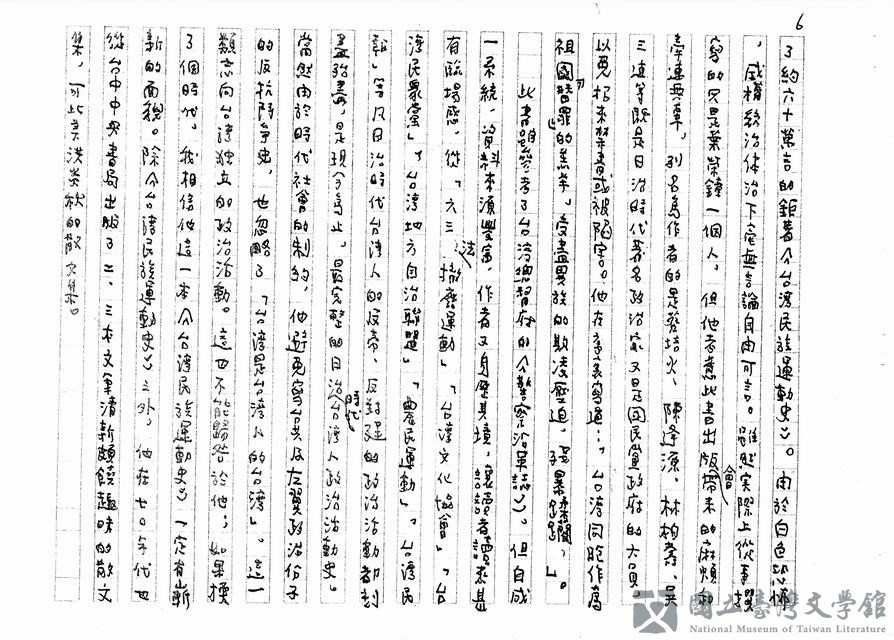 6
了約六十萬言的鉅著《台灣民族運動史》。由於白色恐怖
，威權統治体治下毫無言論自由可言。雖然実際上從事撰
寫的只是葉榮鐘一個人，但他考慮此書出版會帶來的麻煩和
牽連無辜，列名為作者的是蔡培火、陳逢源、林柏壽、吳
三連等既是日治時代著名政治家又是国民黨政府的大員，
以免招來禁書或被陷害。他在序裏寫道：「台湾同胞作為
祖國贖罪的羔羊，受盡異族的欺凌壓迫，強暴蹂躪，」。
此書儘管參考了台湾總督府的《警察沿革誌》。但自成
一系統，資料來源豐富，作者又身歷其境，讓讀者讀來甚
有臨場感，從「六三法撤廢運動」「台湾文化協會」「台
湾民眾党」、「台湾地方自治聯盟」「農民運動」「台湾民
報」等及日治時代台湾人的反帝、反封建的政治活動刻
畫殆盡，是現今為止，最完整的日治時代台湾人政治活動史。
當然由於時代社會的制約，他避免寫台共及左翼政治份子
的反抗鬥爭史，也忽略了「台湾是台湾人的台湾」。這一
類志向台湾獨立的政治活動。這也不能歸咎於他；如果換
了個時代，我相信他這一本《台湾民族運動史》一定有嶄
新的面貌。除《台湾民族運動史》之外，他在七〇年代也
從台中中央書局出版了二、三本文筆清新頗饒趣味的散文
集，可比美洪炎秋的散文集。
國立臺灣文學館
National Museum of Taiwan Literature